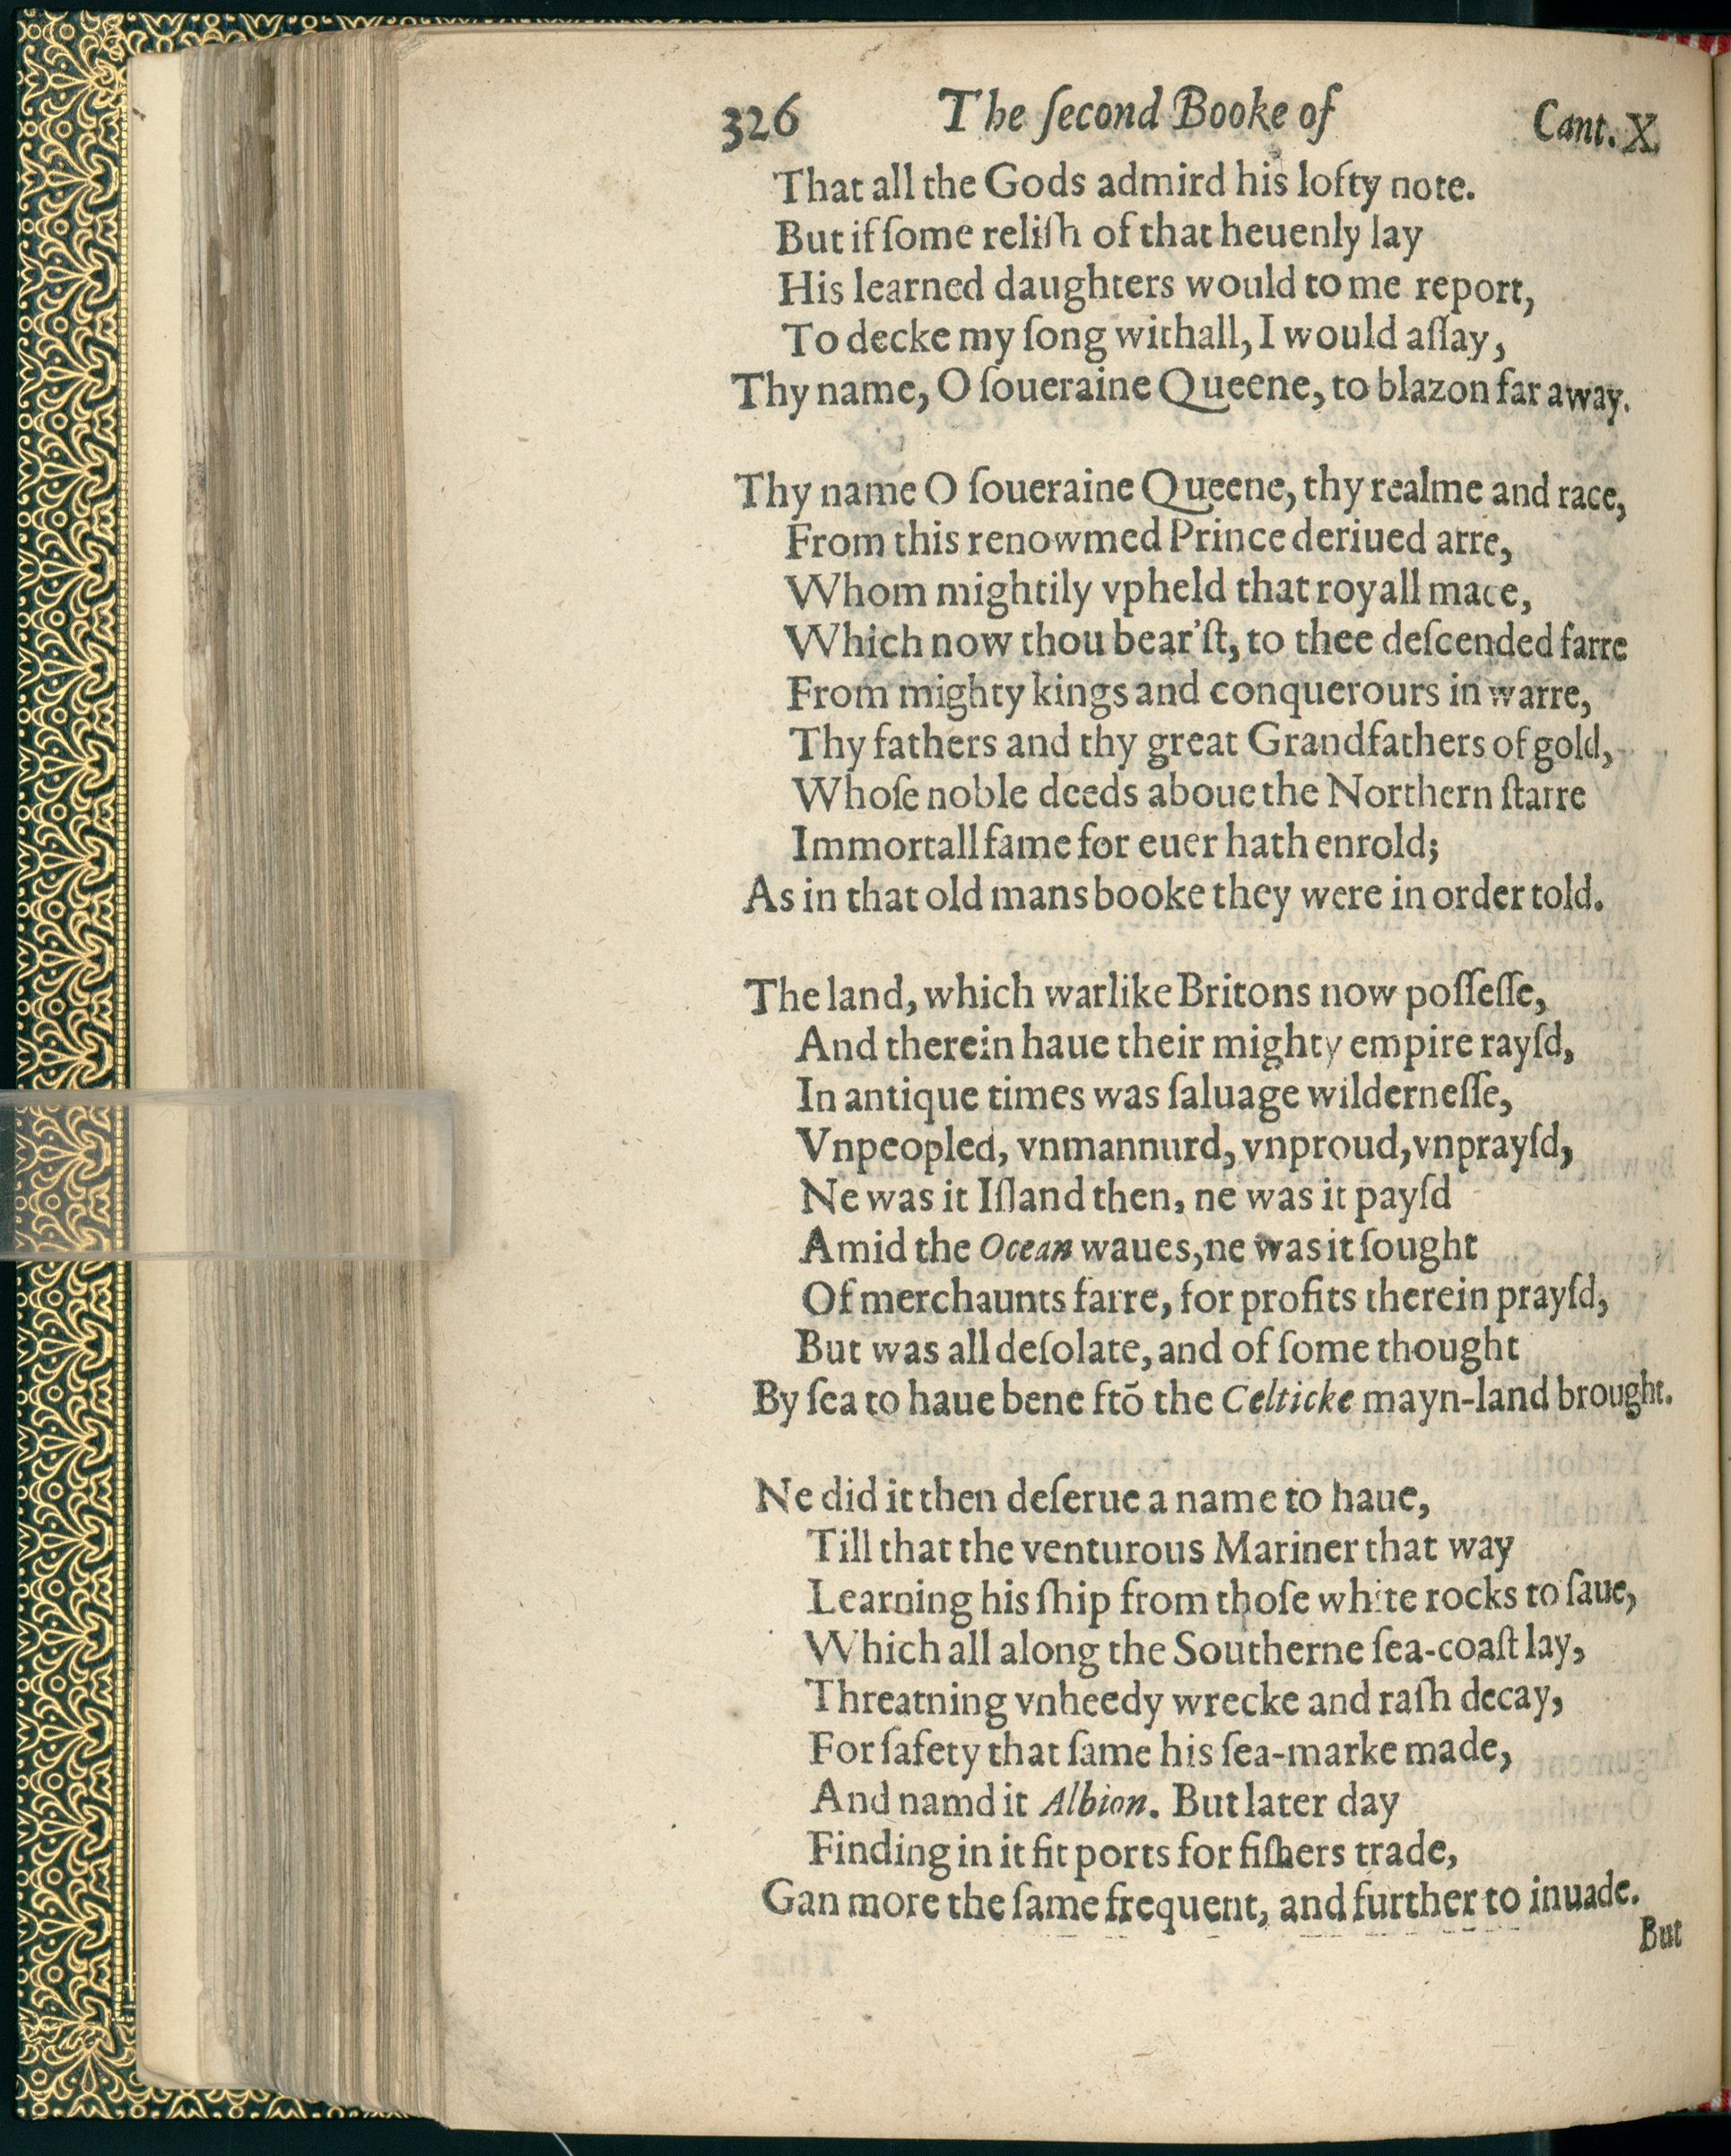 326 The ſecond Booke of Cant. X.
That all the Gods admird his lofty note.
But if ſome reliſh of that heuenly lay
His learned daughters would to me report,
To decke my ſong withall, I would aſſay,
Thy name, O ſoueraine Queene, to blazon far away.
Thy name O ſoueraine Queene, thy realme and race,
From this renowmed Prince deriued arre,
Whom mightily vpheld that royall mace,
Which now thou bear'ſt, to thee deſcended farre
From mighty kings and conquerours in warre,
Thy fathers and thy great Grandfathers of gold,
Whoſe noble deeds aboue the Northern ſtarre
Immortall fame for euer hath enrold;
As in that old mans booke they were in order told.
The land, which warlike Britons now poſſeſſe,
And therein haue their mighty empire rayſd,
In antique times was ſaluage wilderneſſe,
Vnpeopled, vnmannurd, vnproud, vnprayſd,
Ne was it Iſland then, ne was it payſd
Amid the Ocean waues, ne was it ſought
Of merchaunts farre, for profits therein prayſd,
But was all deſolate, and of ſome thought
By ſea to haue bene frō the Celticke mayn-land brought.
Ne did it then deſerue a name to haue,
Till that the venturous Mariner that way
Learning his ſhip from thoſe white rocks to ſaue,
Which all along the Southerne ſea-coaſt lay,
Threatning vnheedy wrecke and raſh decay,
For ſafety that ſame his ſea-marke made,
And namd it Albion. But later day
Finding in it fit ports for fiſhers trade,
Gan more the ſame frequent, and further to inuade.
But